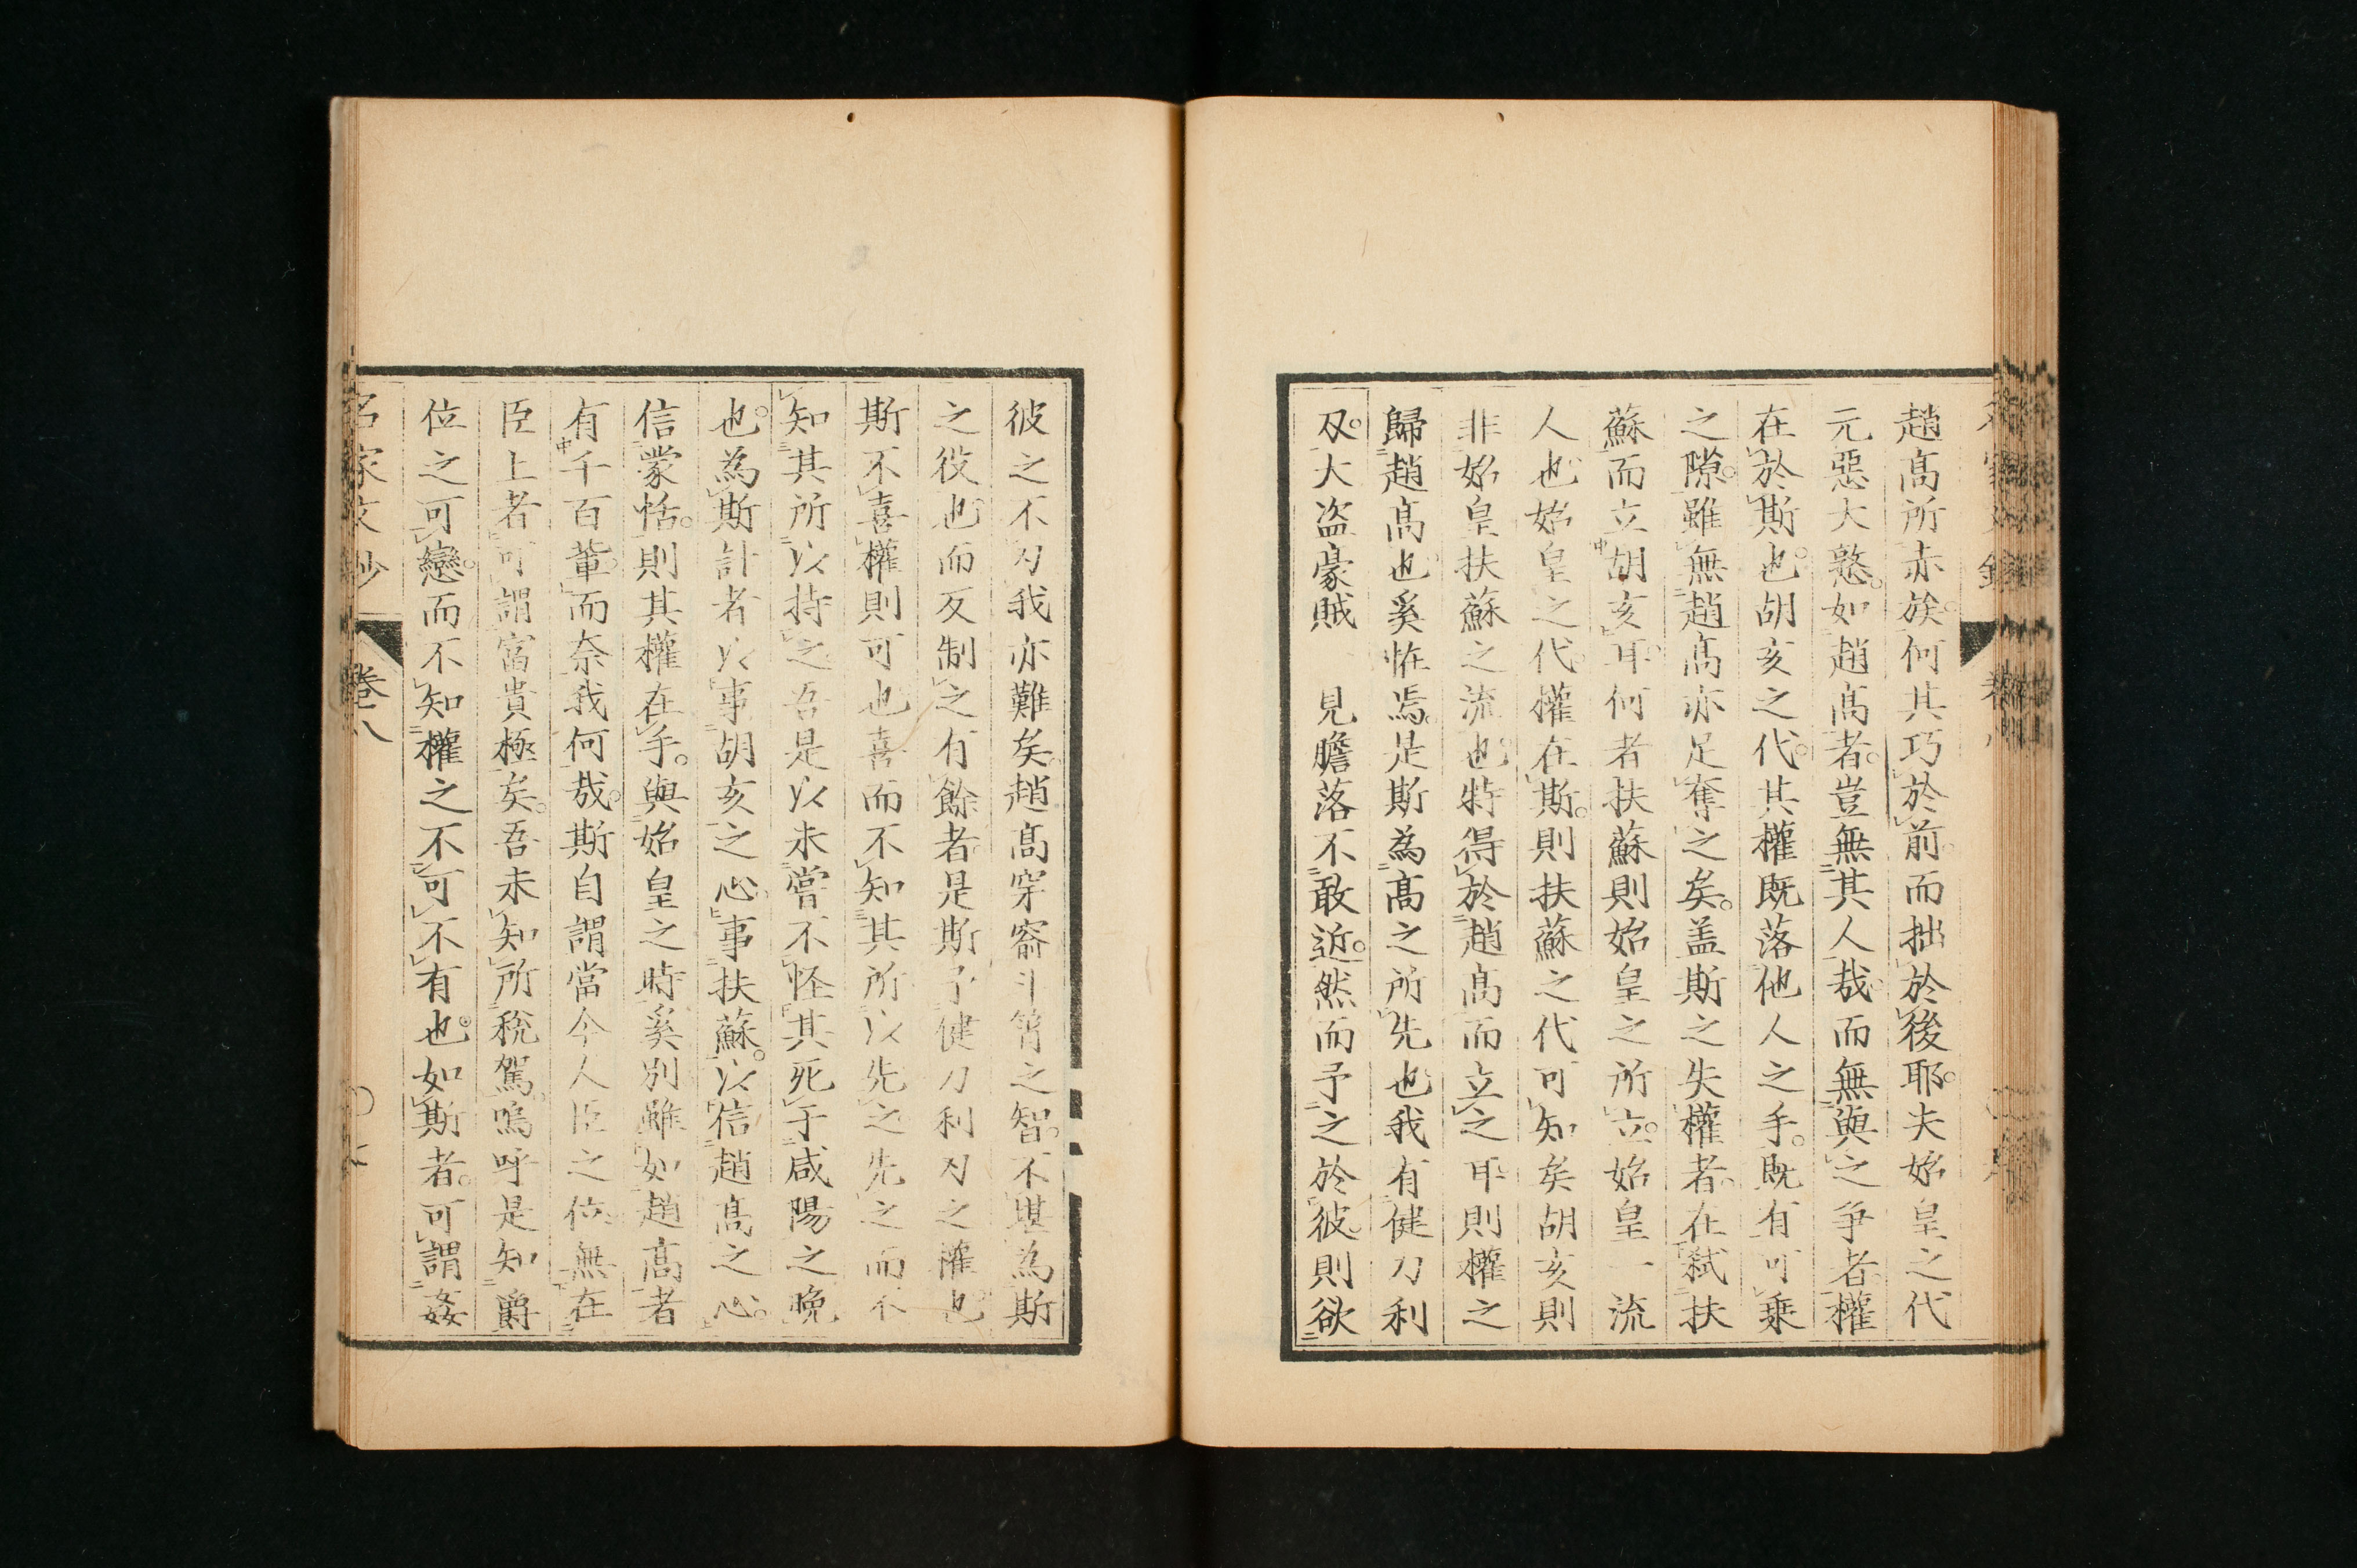 趙高所赤族何其巧於前而拙於後耶夫始皇之代
元惡大憝如趙高者豈無其人哉而無與之爭者權
在於斯也胡亥之代其權既落他人之手既有可乗
之隙雖無趙高亦足奪之矣盖斯之失權者在弑扶
蘇而立胡亥耳何者扶蘇則始皇之所立始皇一流
人也始皇之代權在斯則扶蘇之代可知矣胡亥則
非始皇扶蘇之流也特得於趙高而立之耳則權之
歸趙高也奚恠焉是斯為高之所先也我有健刀利
刄大盗豪賊 見膽落不敢近然而予之於彼則欲
彼之不刃我亦難矣趙高穿窬斗筲之智不堪為斯
之役也而反制之有餘者是斯予健刀利刃之權也
斯不喜權則可也喜而不知其所以先之先之而不
知其所以持之吾是以未嘗不怪其死于咸陽之晩
也為斯計者以事胡亥之心事扶蘇以信趙高之心
信蒙恬則其權在手與始皇之時奚別雖如趙高者
有千百輩而奈我何哉斯自謂當今人臣之位無在
臣上者可謂富貴極矣吾未知所稅駕嗚呼是知爵
位之可戀而不知權之不可不有也如斯者可謂姦
名家文抄 卷八